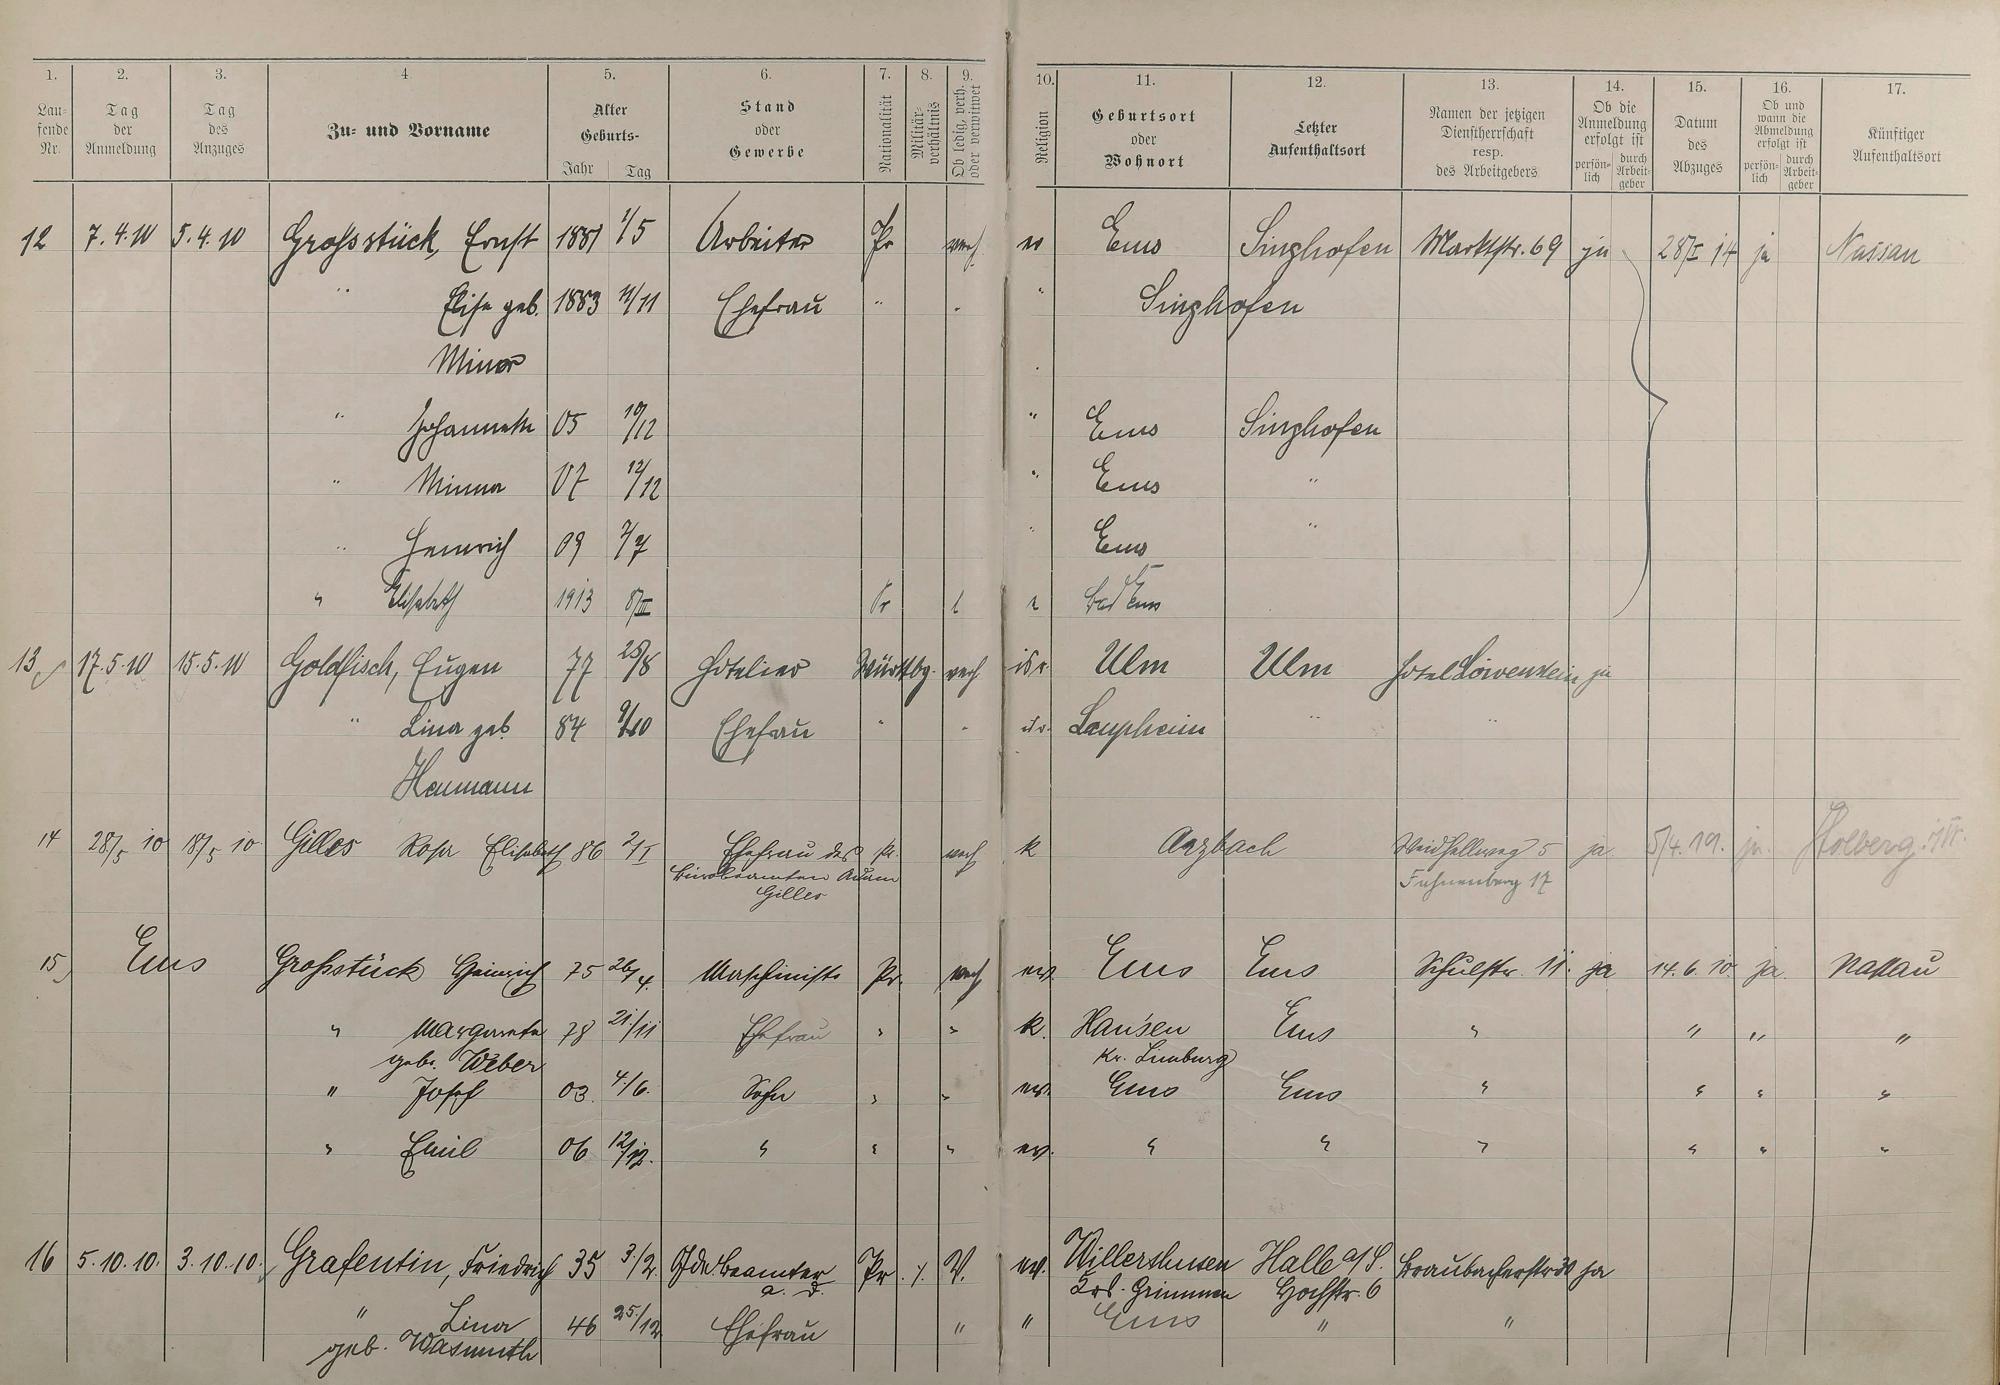 1. 2. 3. 4 5. 6. 7. 8. 9. 10. 11. 12. 13. 14. 15. 16. 17.
Lau-fende Nr. Tag der Anmeldung Tag des Anzuges Zu- und Vorname Alter Geburts- Jahr Tag Stand oder Gewerbe Nationalität Militär-verhältnis Ob ledig, verh. oder verwitwet Religion Geburtsort oder Wohnort Letzter Aufenthaltsort Namen der jetzigen Dienstherrschaft resp. des Arbeitgebers Ob die Anmeldung erfolgt ist persön-lich durch Arbeit-geber Datum des Abzuges Ob und wann die Abmeldung erfolgt ist persön-lich durch Arbeit-geber Künftiger Aufenthaltsort
12 7.4.10 5.4.10 Grossstück, Ernst 1881 1/5 Arbeiter Pr verh. ev Ems Singhofen Marktstr. 69 ja 28/I 14 ja Nassau
" Elise geb. 1883 11/11 Ehefrau " " " Singhofen
Minor
" Johannette 05 10/12 " Ems Singhofen
" Minna 07 12/12 " Ems "
" Heinrich 09 2/7 " Ems "
" Elisabeth 1913 8/III Pr l Bad Ems
13 17.5.10 15.5.10 Goldfisch, Eugen 77 25/8 Hotelier Württbg. verh isr. Ulm Ulm Hotel Löwenstein ja
" Lina geb 84 9/10 Ehefrau " " isr. Laupheim " "
Heumann
14 28/5 10 18/5 10 Gilles Rosa Elisabeth 86 2/I Ehefrau des Pr. verh k Arzbach 5 ja 5/4.19. ja.
Bürobeamten Adam 17
Gilles
15 Ems Grossstück Heinrich 75 26/4. Maschiniste Pr. verh ev. Ems Ems Schulstr. 11. ja 14.6.10. ja. Nassau
" Margarete 78 21/11 Ehefrau " " k. Hausen Ems " " " "
geb. Weber Kr. Limburg
" Josef 03. 4/6. Sohn " " ev. Ems Ems " " " "
" Emil 06 12/12. " " " ev. " " " " " "
16 5.10.10. 3.10.10. Grafentin, Friedrich 35 3/2. Beamter Pr . /. V. ev. Willershusen Halle a/S. Braubacherstr ja
a. D. Krs. Grimmen Hochstr. 6
" Lina 46 25/12 Ehefrau " " Ems " "
geb. Wasmuth